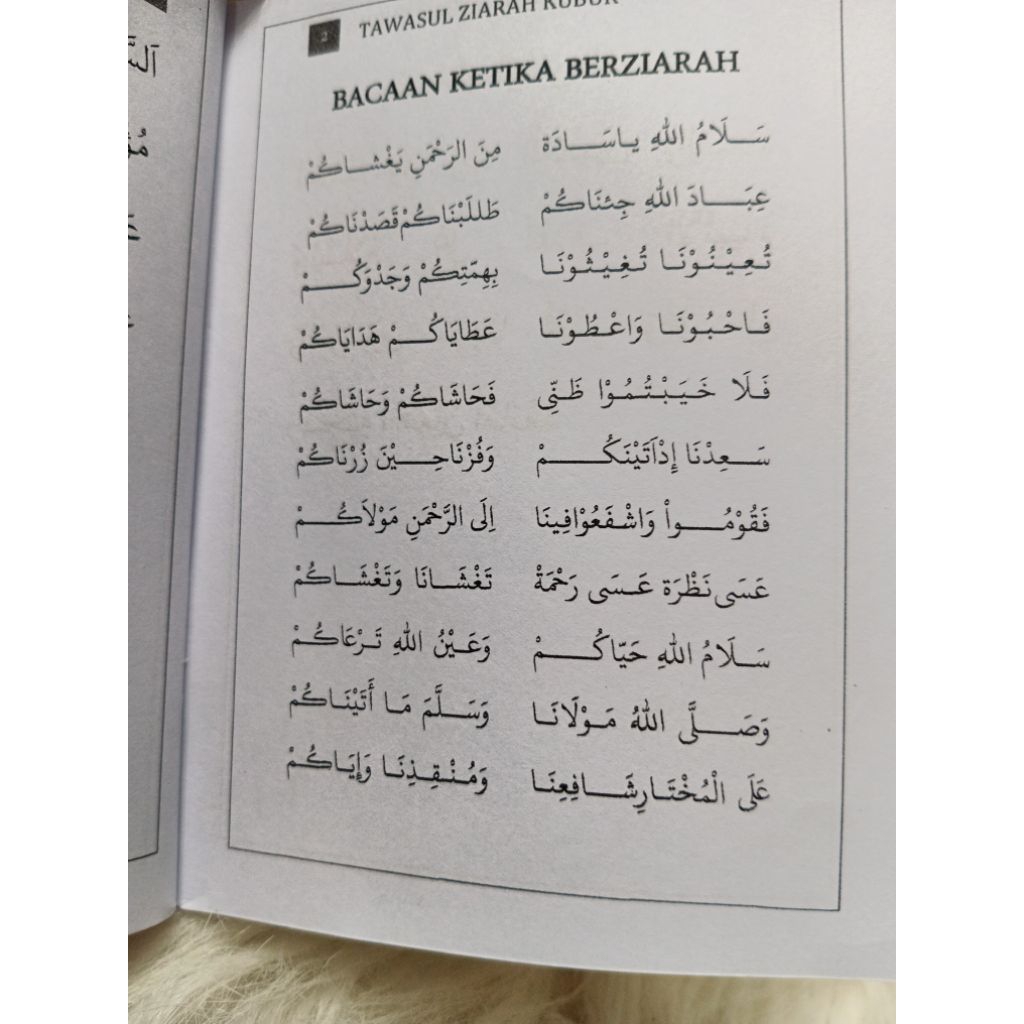 2 TAWASUL ZIARAH KUBUR
BACAAN KETIKA BERZIARAH
سَـلَامُ اللهِ يـاسَـادَة مِنَ الرَحْمَنِ يَغْشـاكُمْ
عِبَـادَ اللهِ جِئنَاكُمْ طَللَبْنَاكُمْ قَصَدْنَاكُمْ
تُـعِيْـنُـوْنَـا تُـغِيْـثُـوْنَـا بِهِمّتِكُمْ وَجَدْوَكُـمْ
فَـاحْبُـوْنَـا وَاعْـطُـوْنَـا عَطَايَاكُـمْ هَدَايَاكُمْ
فَـلَا خَـيَـبْـتُـمُـوْا ظَـنِّى فَحَاشَاكُمْ وَحَاشَاكُمْ
سَـعِدْنَا إِذْاَتَيْنَكُـمْ وَفُزْنَاحِـيْنَ زُرْنَاكُمْ
فَقُوْمُـواْ وَاشْـفَعُوْافِينَا اِلَى الرَّحْمَنِ مَوْلاَكُـمْ
عَسَى نَظْرَة عَـسَى رَحْمَةْ تَغْشَـانَا وَتَغْشَـاكُمْ
سَـلَامُ اللهِ حَيّاكُـمْ وَعَيْنُ اللهِ تَـرْعَاكُـمْ
وَصَـلَّى اللهُ مَـوْلَانَـا وَسَـلَّمَ مَـا أَتَيْنَـاكُمْ
عَلَى الْمُخْتَـارِشَـافِعِنَـا وَمُنْـقِـذِنَـا وَإِيَـاكُمْ